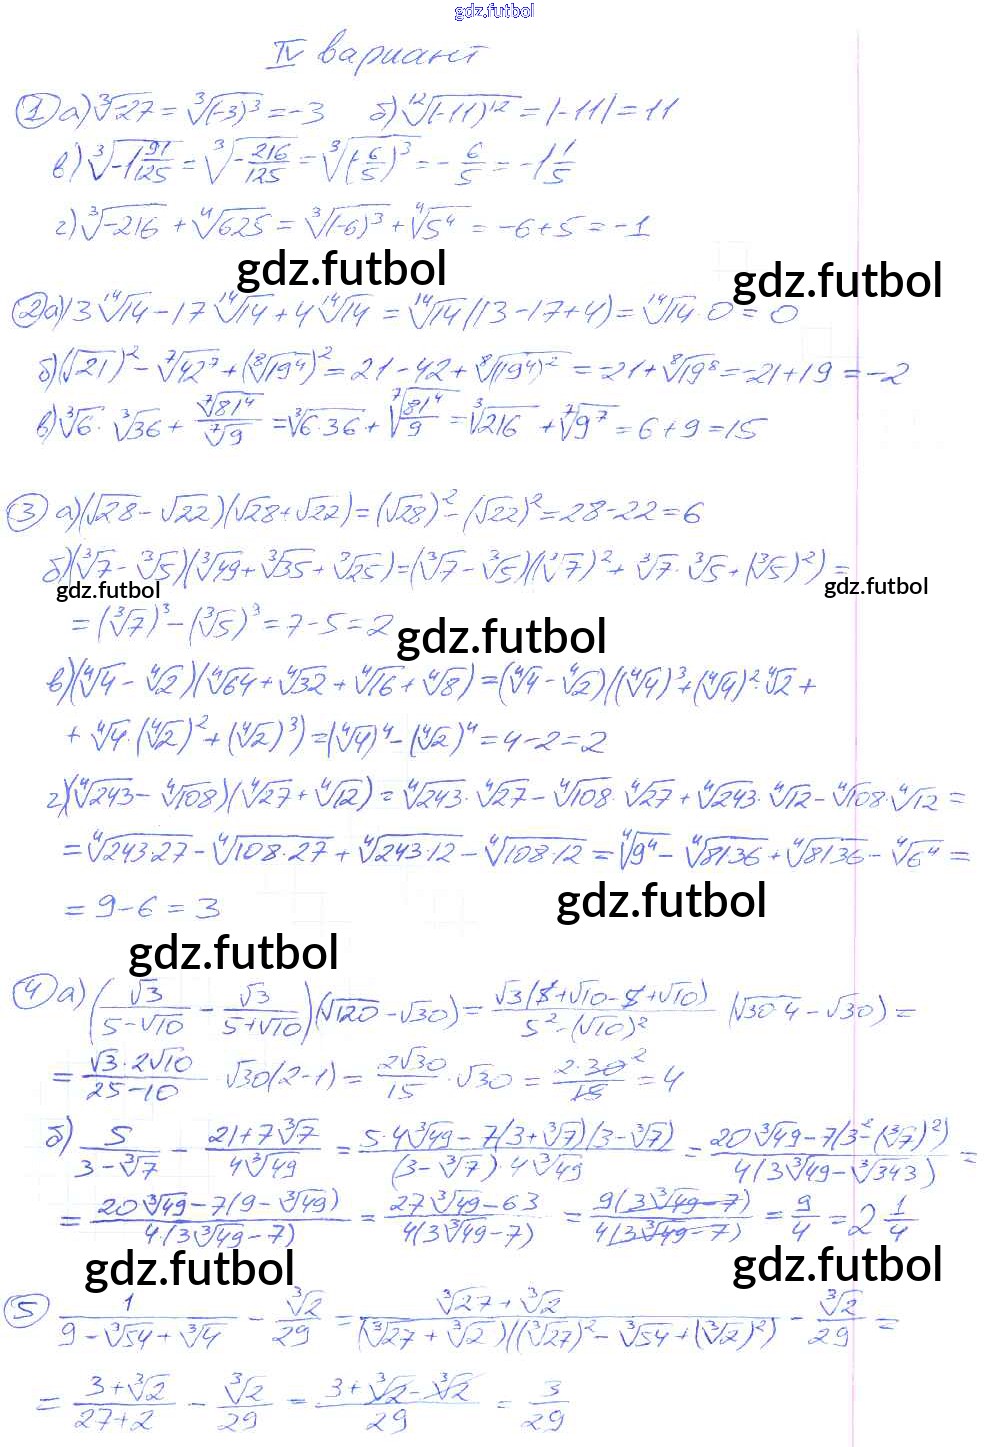 gdz.futbol
IV вариант
① а) ∛-27 = ∛(-3)³ = -3 б) ¹²√(-11)¹² = |-11| = 11
в) ∛-1 91/125 = ∛-216/125 = ∛(-6/5)³ = -6/5 = -1 1/5
г) ∛-216 + ⁴√625 = ∛(-6)³ + ⁴√5⁴ = -6+5 = -1
gdz.futbol gdz.futbol
② а) 13 ¹⁴√14 - 17 ¹⁴√14 + 4 ¹⁴√14 = ¹⁴√14 (13-17+4) = ¹⁴√14 · 0 = 0
б) (√21)² - ⁷√42⁷ + (⁸√19⁴)² = 21 - 42 + ⁸√(19⁴)² = -21 + ⁸√19⁸ = -21+19 = -2
в) ∛6 · ∛36 + ⁷√81⁴/⁷√9 = ∛6·36 + ⁷√81⁴/9 = ∛216 + ⁷√9⁷ = 6+9 = 15
③ а) (√28 - √22)(√28 + √22) = (√28)² - (√22)² = 28-22 = 6
б) (∛7 - ∛5)(∛49 + ∛35 + ∛25) = (∛7 - ∛5)((∛7)² + ∛7 · ∛5 + (∛5)²) =
gdz.futbol gdz.futbol
= (∛7)³ - (∛5)³ = 7-5 = 2 gdz.futbol
в) (⁴√4 - ⁴√2)(⁴√64 + ⁴√32 + ⁴√16 + ⁴√8) = (⁴√4 - ⁴√2)((⁴√4)³ + (⁴√4)² · ⁴√2 +
+ ⁴√4 · (⁴√2)² + (⁴√2)³) = (⁴√4)⁴ - (⁴√2)⁴ = 4-2 = 2
г) (⁴√243 - ⁴√108)(⁴√27 + ⁴√12) = ⁴√243 · ⁴√27 - ⁴√108 · ⁴√27 + ⁴√243 · ⁴√12 - ⁴√108 · ⁴√12 =
= ⁴√243·27 - ⁴√108·27 + ⁴√243·12 - ⁴√108·12 = ⁴√9⁴ - ⁴√81·36 + ⁴√81·36 - ⁴√6⁴ =
= 9-6 = 3 gdz.futbol
gdz.futbol
④ а) (√3/(5-√10) - √3/(5+√10))(√120 - √30) = √3(5+√10-5+√10)/(5²-(√10)²) (√30·4 - √30) =
= √3·2√10/(25-10) · √30(2-1) = 2√30/15 · √30 = 2·30²/15 = 4
б) 5/(3-∛7) - (21+7∛7)/(4∛49) = (5·4∛49 - 7(3+∛7)(3-∛7))/((3-∛7)·4∛49) = (20∛49 - 7(3²-(∛7)²))/(4(3∛49-∛343)) =
= (20∛49 - 7(9-∛49))/(4·(3∛49-7)) = (27∛49-63)/(4(3∛49-7)) = 9(3∛49-7)/(4(3∛49-7)) = 9/4 = 2 1/4
gdz.futbol gdz.futbol
⑤ 1/(9-∛54+∛4) - ∛2/29 = (∛27+∛2)/((∛27+∛2)((∛27)²-∛54+(∛2)²)) - ∛2/29 =
= (3+∛2)/(27+2) - ∛2/29 = (3+∛2-∛2)/29 = 3/29